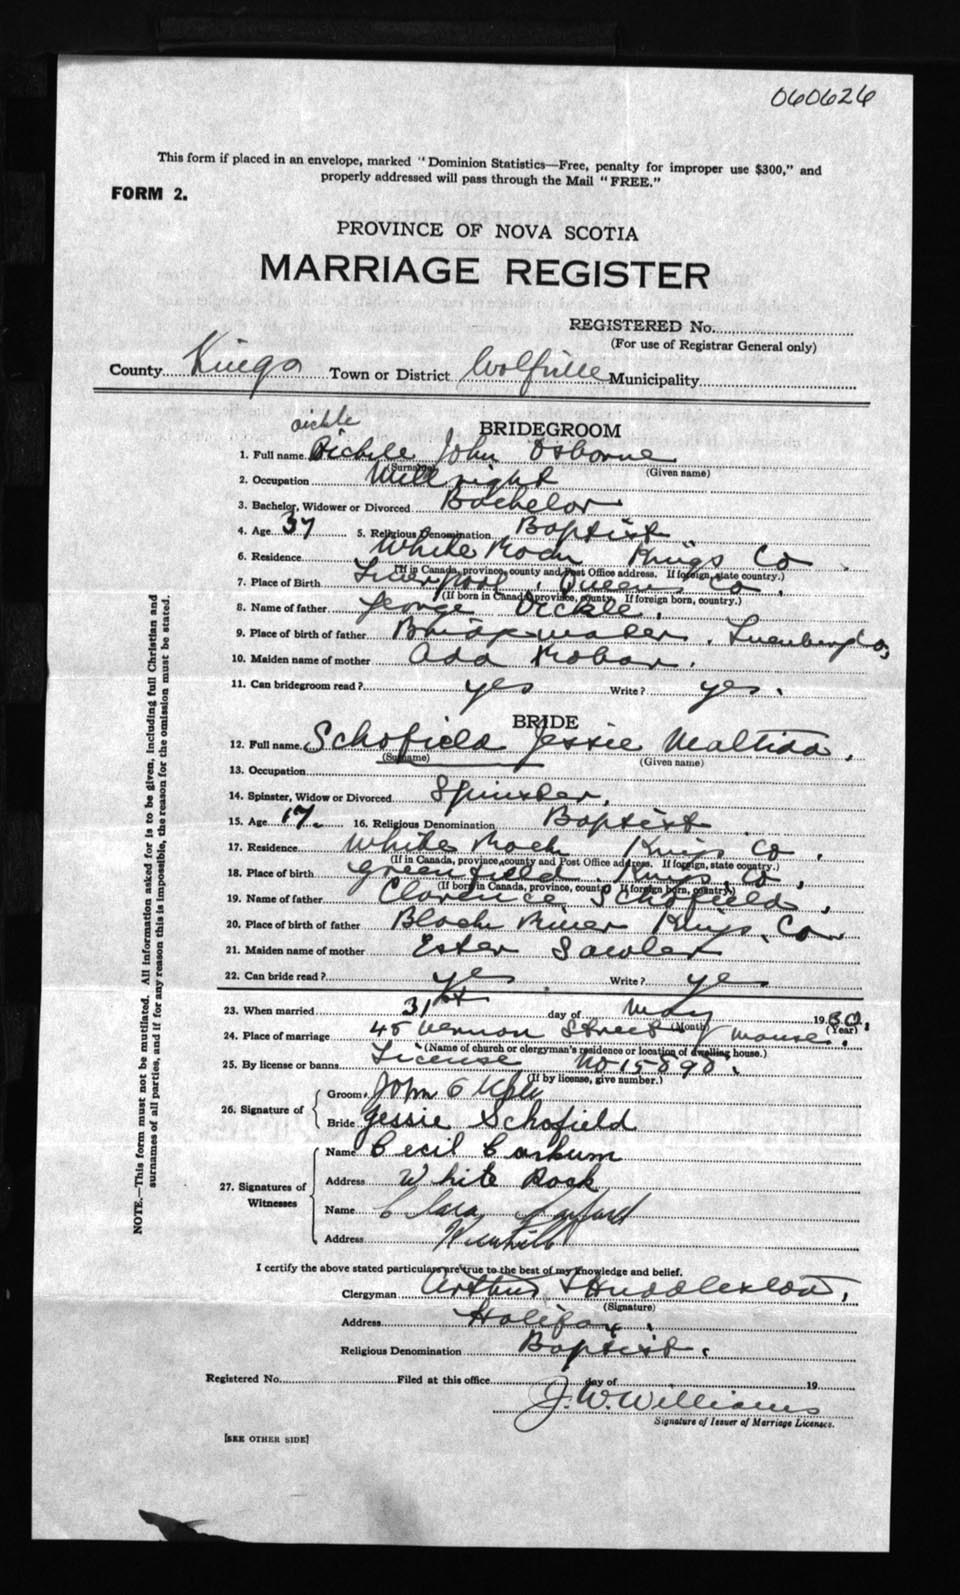 060626
This form if placed in an envelope, marked "Dominion Statistics—Free, penalty for improper use $300," and
properly addressed will pass through the Mail "FREE."
FORM 2.
PROVINCE OF NOVA SCOTIA
MARRIAGE REGISTER
REGISTERED No.
(For use of Registrar General only)
County Kings Town or District Wolfville Municipality
BRIDEGROOM
1. Full name John Osborne
(Surname) (Given name)
2. Occupation Millright
3. Bachelor, Widower or Divorced Bachelor
4. Age 37 5. Religious Denomination Baptist
6. Residence White Rock Kings Co
(If in Canada, province, county and Post Office address. If foreign, state country.)
7. Place of Birth Liverpool, Queens Co.
(If born in Canada province, county. If foreign born, country.)
8. Name of father George Dickle.
9. Place of birth of father Lunenburg Co,
10. Maiden name of mother Ada
11. Can bridegroom read? yes Write? yes.
BRIDE
12. Full name Schofield Jessie Maltida,
(Surname) (Given name)
13. Occupation
14. Spinster, Widow or Divorced Spinster,
15. Age 17. 16. Religious Denomination Baptist
17. Residence White Rock Kings Co.
(If in Canada, province, county and Post Office address. If foreign, state country.)
18. Place of birth Greenfield. Kings, Co,
(If born in Canada, province, county. If foreign born, country.)
19. Name of father Clarence Schofield,
20. Place of birth of father Black River Kings. Co
21. Maiden name of mother Ester Sawler
22. Can bride read? yes. Write? yes
23. When married 31st day of May 1930.
(Month) (Year)
24. Place of marriage 45 Vernon Street
(Name of church or clergyman's residence or location of dwelling house.)
25. By license or banns License No 15898.
(If by license, give number.)
26. Signature of
Groom John O
Bride Jessie Schofield
27. Signatures of Witnesses
Name Cecil Corkum
Address White Rock
Name Clara
Address
I certify the above stated particulars are true to the best of my knowledge and belief.
Clergyman Arthur
(Signature)
Address Halifax.
Religious Denomination Baptist.
Registered No. Filed at this office day of 19
J. W. Williams
Signature of Issuer of Marriage Licenses.
[SEE OTHER SIDE]
NOTE.—This form must not be mutilated. All information asked for is to be given, including full Christian and
surnames of all parties, and if for any reason this is impossible, the reason for the omission must be stated.